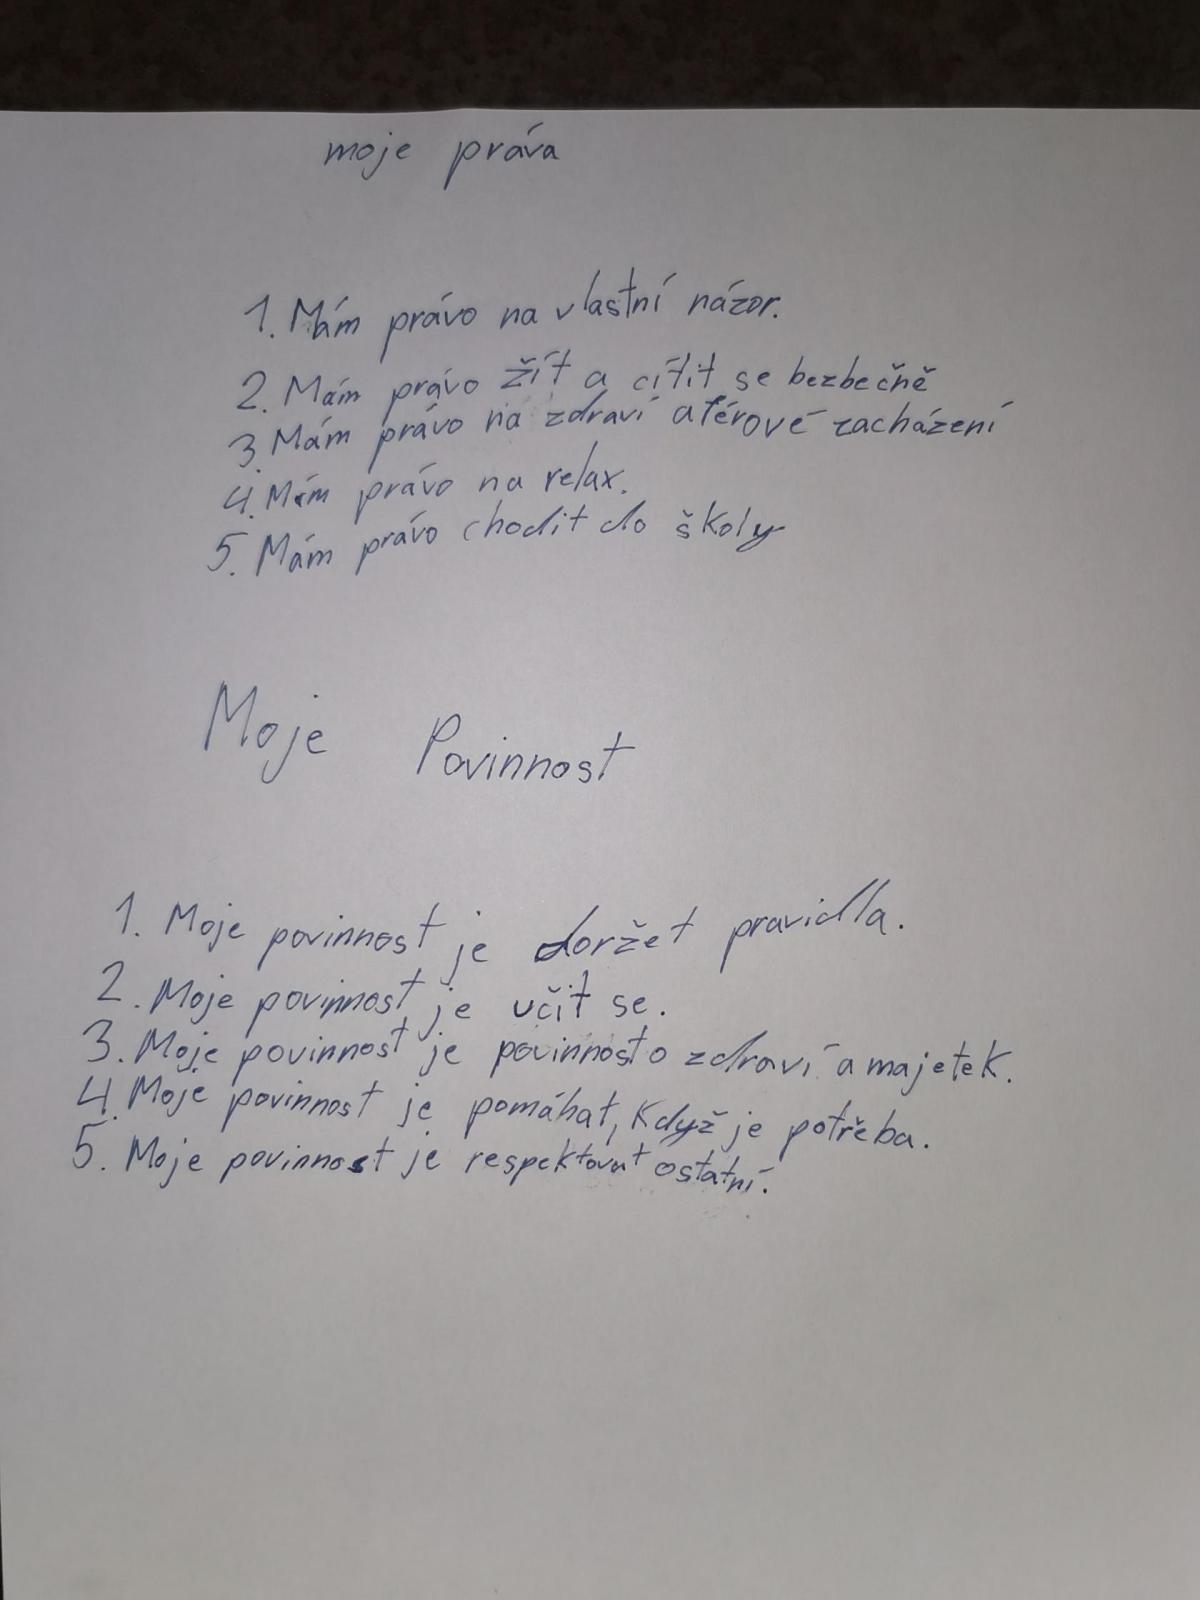 moje práva
1. Mám právo na vlastní názor.
2. Mám právo žít a cítit se bezbečně
3. Mám právo na zdraví a férové zacházení
4. Mám právo na relax.
5. Mám právo chodit do školy
Moje Povinnost
1. Moje povinnost je doržet pravidla.
2. Moje povinnost je učit se.
3. Moje povinnost je povinnost o zdraví a majetek.
4. Moje povinnost je pomáhat, když je potřeba.
5. Moje povinnost je respektovat ostatní.